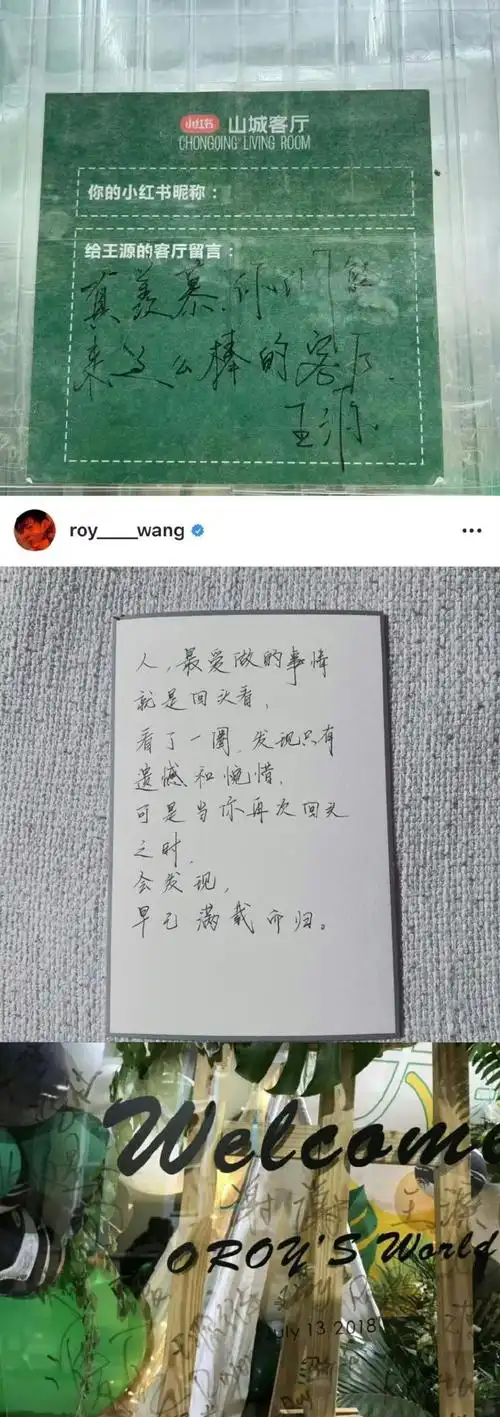 小红书 山城客厅
CHONGQING LIVING ROOM
你的小红书昵称：
给王源的客厅留言：
真羡慕你们能
来这么棒的客厅.
王源
roy____wang
人，最爱做的事情
就是回头看，
看了一圈，发现只有
遗憾和惋惜，
可是当你再次回头
之时，
会发现，
早已满载而归。
Welcome
谢谢 王源
OROY'S World
July 13 2018